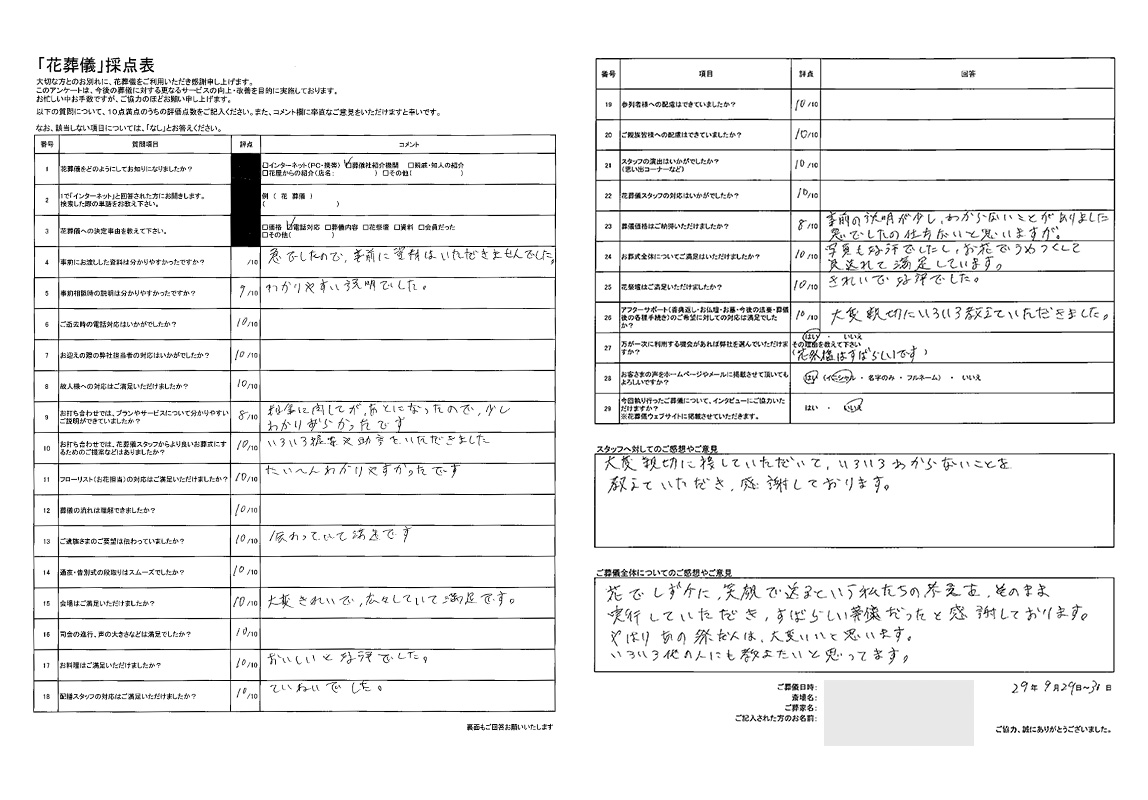 「花葬儀」採点表
大切な方とのお別れに、花葬儀をご利用いただき感謝申し上げます。
このアンケートは、今後の葬儀に対する更なるサービスの向上・改善を目的に実施しております。
お忙しい中お手数ですが、ご協力のほどお願い申し上げます。
以下の質問について、10点満点のうちの評価点数をご記入ください。また、コメント欄に率直なご意見をいただけますと幸いです。
なお、該当しない項目については、「なし」とお答えください。
番号 質問項目 評点 コメント
1 花葬儀をどのようにしてお知りになりましたか? □インターネット(PC・携帯) ☑葬儀社紹介機関 □親戚・知人の紹介
□花屋からの紹介(店名: ) □その他( )
2 1で「インターネット」と回答された方にお聞きします。 例 ( 花 葬儀 )
検索した際の単語をお教え下さい。 ( )
3 花葬儀への決定事由を教えて下さい。 □価格 ☑電話対応 □葬儀内容 □花祭壇 □資料 □会員だった
□その他( )
4 事前にお渡しした資料は分かりやすかったですか? /10 急でしたので、事前に資料はいただきませんでした。
5 事前相談時の説明は分かりやすかったですか? 9/10 わかりやすい説明でした。
6 ご逝去時の電話対応はいかがでしたか? 10/10
7 お迎えの際の弊社担当者の対応はいかがでしたか? 10/10
8 故人様への対応はご満足いただけましたか? 10/10
9 お打ち合わせでは、プランやサービスについて分かりやすい 8/10 料金に関してが、あとになったので、少し
ご説明ができていましたか? わかりずらかったです
10 お打ち合わせでは、花葬儀スタッフからより良いお葬式にす 10/10 いろいろ提案や助言をいただきました
るためのご提案などはありましたか?
11 フローリスト(お花担当)の対応はご満足いただけましたか? 10/10 たいへんわかりやすかったです
12 葬儀の流れは理解できましたか? 10/10
13 ご遺族さまのご要望は伝わっていましたか? 10/10 伝わっていて満足です
14 通夜・告別式の段取りはスムーズでしたか? 10/10
15 会場はご満足いただけましたか? 10/10 大変きれいで、広々していて満足です。
16 司会の進行、声の大きさなどは満足でしたか? 10/10
17 お料理はご満足いただけましたか? 10/10 おいしいと好評でした。
18 配膳スタッフの対応はご満足いただけましたか? 10/10 ていねいでした。
裏面もご回答お願いいたします
番号 項目 評点 回答
19 参列者様への配慮はできていましたか? 10/10
20 ご親族皆様への配慮はできていましたか? 10/10
21 スタッフの演出はいかがでしたか? 10/10
(思い出コーナーなど)
22 花葬儀スタッフの対応はいかがでしたか? 10/10
23 葬儀価格はご納得いただけましたか? 8/10 事前の説明が少し、わからないことがありました
急でしたの仕方ないと思いますが。
24 お葬式全体についてご満足はいただけましたか? 10/10 写真も好評でしたし、お花でうめつくして
見送れて満足しています。
25 花祭壇はご満足いただけましたか? 10/10 きれいで好評でした。
26 アフターサポート(香典返し・お仏壇・お墓・今後の法要・葬儀 10/10 大変親切にいろいろ教えていただきました。
後の各種手続き)のご希望に対しての対応は満足でした
か?
27 万が一次に利用する機会があれば弊社を選んでいただけま はい ・ いいえ
すか? その理由を教えて下さい
(花祭壇はすばらしいです)
28 お客さまの声をホームページやメールに掲載させて頂いても はい (イニシャル ・ 名字のみ ・ フルネーム) ・ いいえ
よろしいですか?
29 今回執り行ったご葬儀について、インタビューにご協力い はい ・ いいえ
ただけますか?
※花葬儀ウェブサイトに掲載させていただきます。
スタッフへ対してのご感想やご意見
大変親切に接していただいて、いろいろわからないことを
教えていただき、感謝しております。
ご葬儀全体についてのご感想やご意見
花でしずかに、笑顔で送るという私たちの希望を、そのまま
実行していただき、すばらしい葬儀だったと感謝しております。
やはりあの祭だんは、大変いいと思います。
いろいろ他の人にも教えたいと思ってます。
ご葬儀日時: 29年 9月29日〜30日
斎場名:
ご葬家名:
ご記入された方のお名前:
ご協力、誠にありがとうございました。